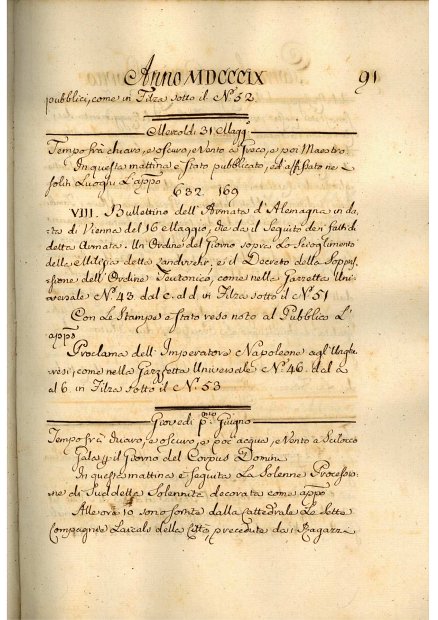 Anno MDCCCIX 91
pubblici, come in Filza sotto il N.º 52
Mercoldi 31 Maggº
Tempo frà chiaro, e oscuro, e Vento a Greco, e poi Maestro.
In questa mattina è stato pubblicato, ed affissato ne
soliti Luoghi L'appº
632 169
VIII. Bullettino dell'Armata d'Alemagna in da-
ta di Vienna del 16 Maggio, che dà il Seguito de fatti di
detta Armata. Un Ordine del Giorno sopra Lo Scioglimento
della Milizia della Landwehr, e il Decreto della Soppres-
sione dell'Ordine Teutonico, come nella Gazzetta Uni-
versale N.º 43 dal c. al d. in Filza sotto il N.º 51
Con Le Stampe è stato reso noto al Pubblico L'
appº
Proclama dell'Imperatore Napoleone agl'Unghe-
resi, come nella Gazzetta Universale N.º 46. dal a
al 6. in Filza sotto il N.º 53
Giovedì pº Giugno
Tempo frà chiaro, e oscuro, e poi acqua, e Vento a Scilocco
Gala p il Giorno del Corpus Domini
In questa mattina è seguita La Solenne Processio-
ne di Sud.detta Solennità decorata come appº
Alle ore 10 sono sortite dalla Cattedrale Le sette
Compagnie Laicali della Città precedute da i Ragazzi